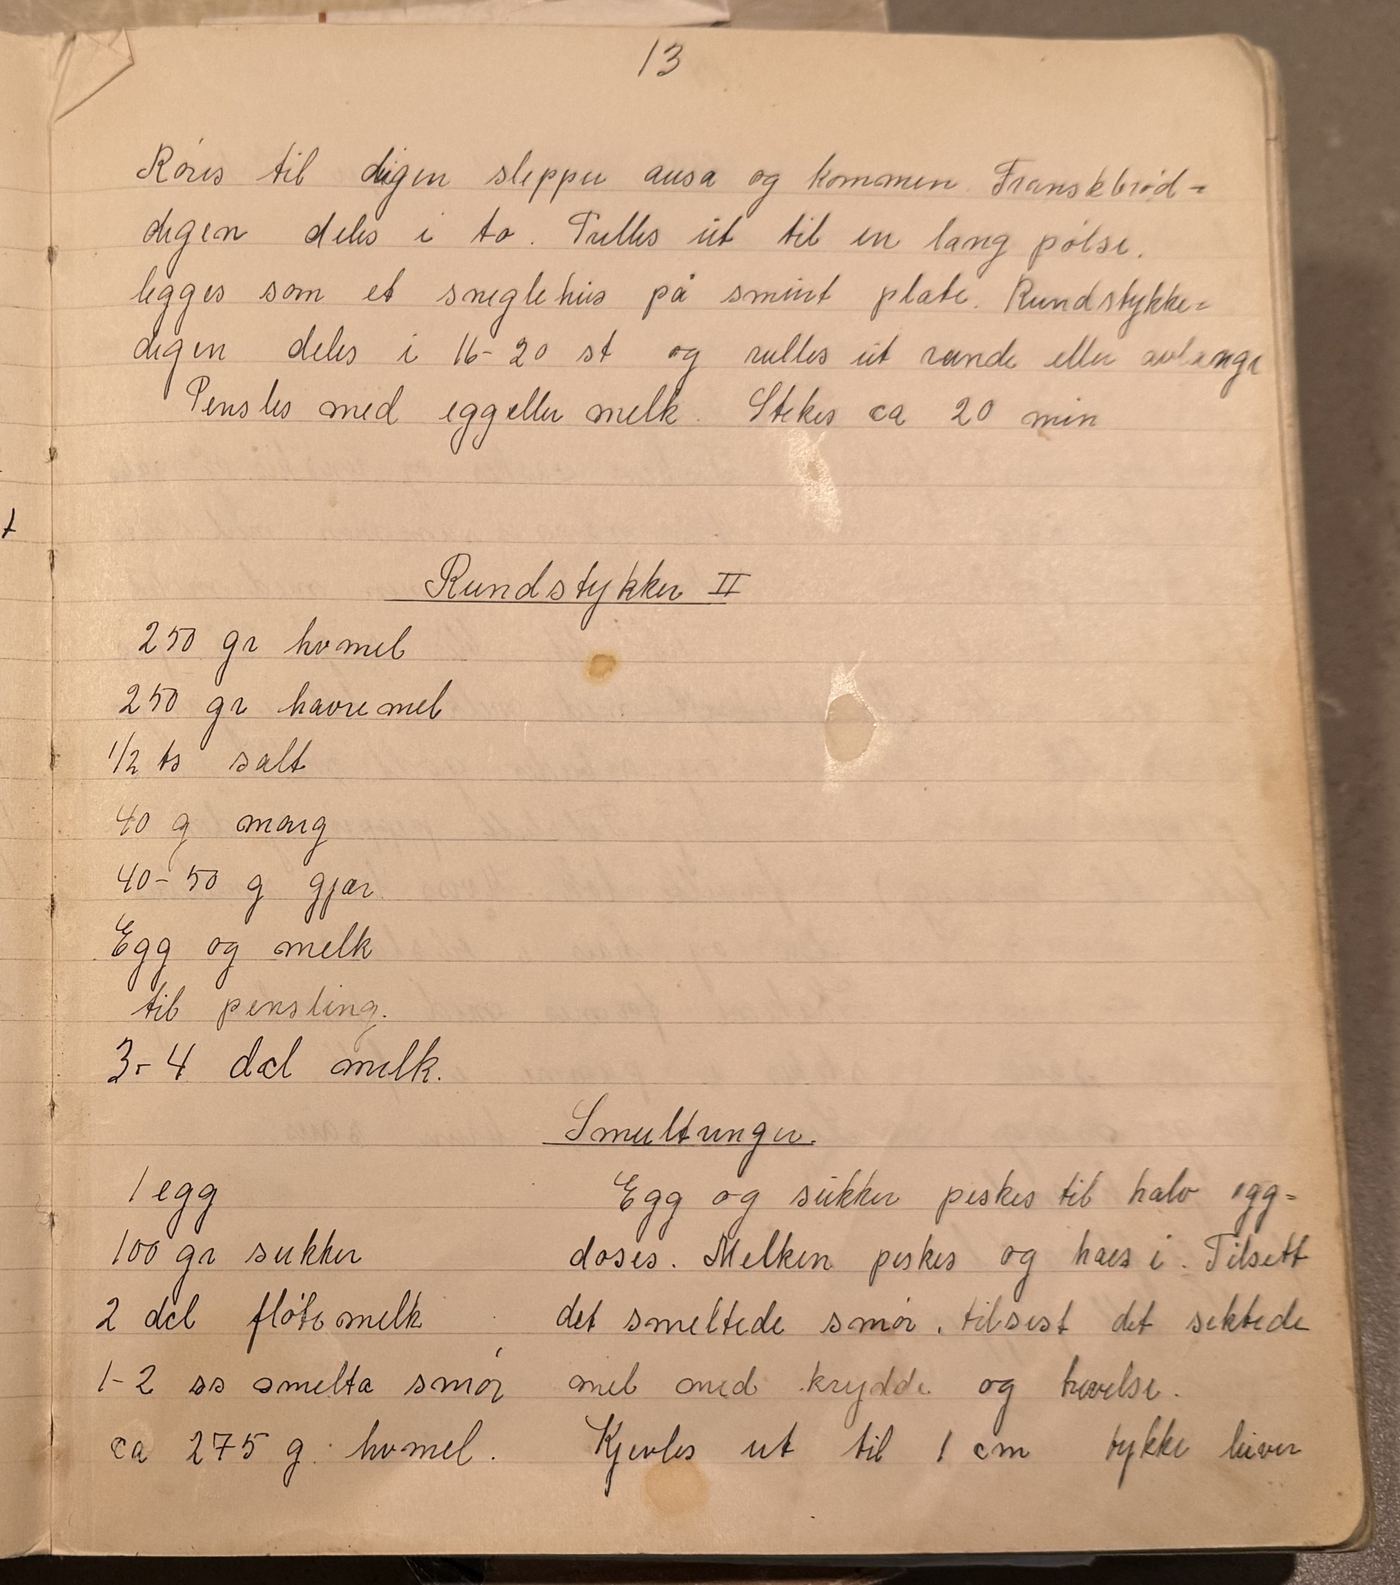 13
Røres til deigen slepper ausa og kommen. Franskbrød-
deigen deles i to. Trilles ut til en lang pølse.
legges som et sneglehus på smurt plate. Rundstykke-
deigen deles i 16-20 st og rulles ut runde eller avlange
Pensles med egg eller melk. Stekes ca 20 min
Rundstykker II
250 gr hvmel
250 gr havremel
1/2 ts salt
40 g marg
40-50 g gjær
Egg og melk
til pensling.
3-4 dcl melk.
Smultringer.
1 egg
100 gr sukker
2 dcl fløtemelk
1-2 ss smelta smør
ca 275 g. hvmel.
Egg og sukker piskes til halv egg-
doses. Melken piskes og haes i. Tilsett
det smeltede smør, tilsist det siktede
mel med krydde og hevelse.
Kjevles ut til 1 cm tykke leiver